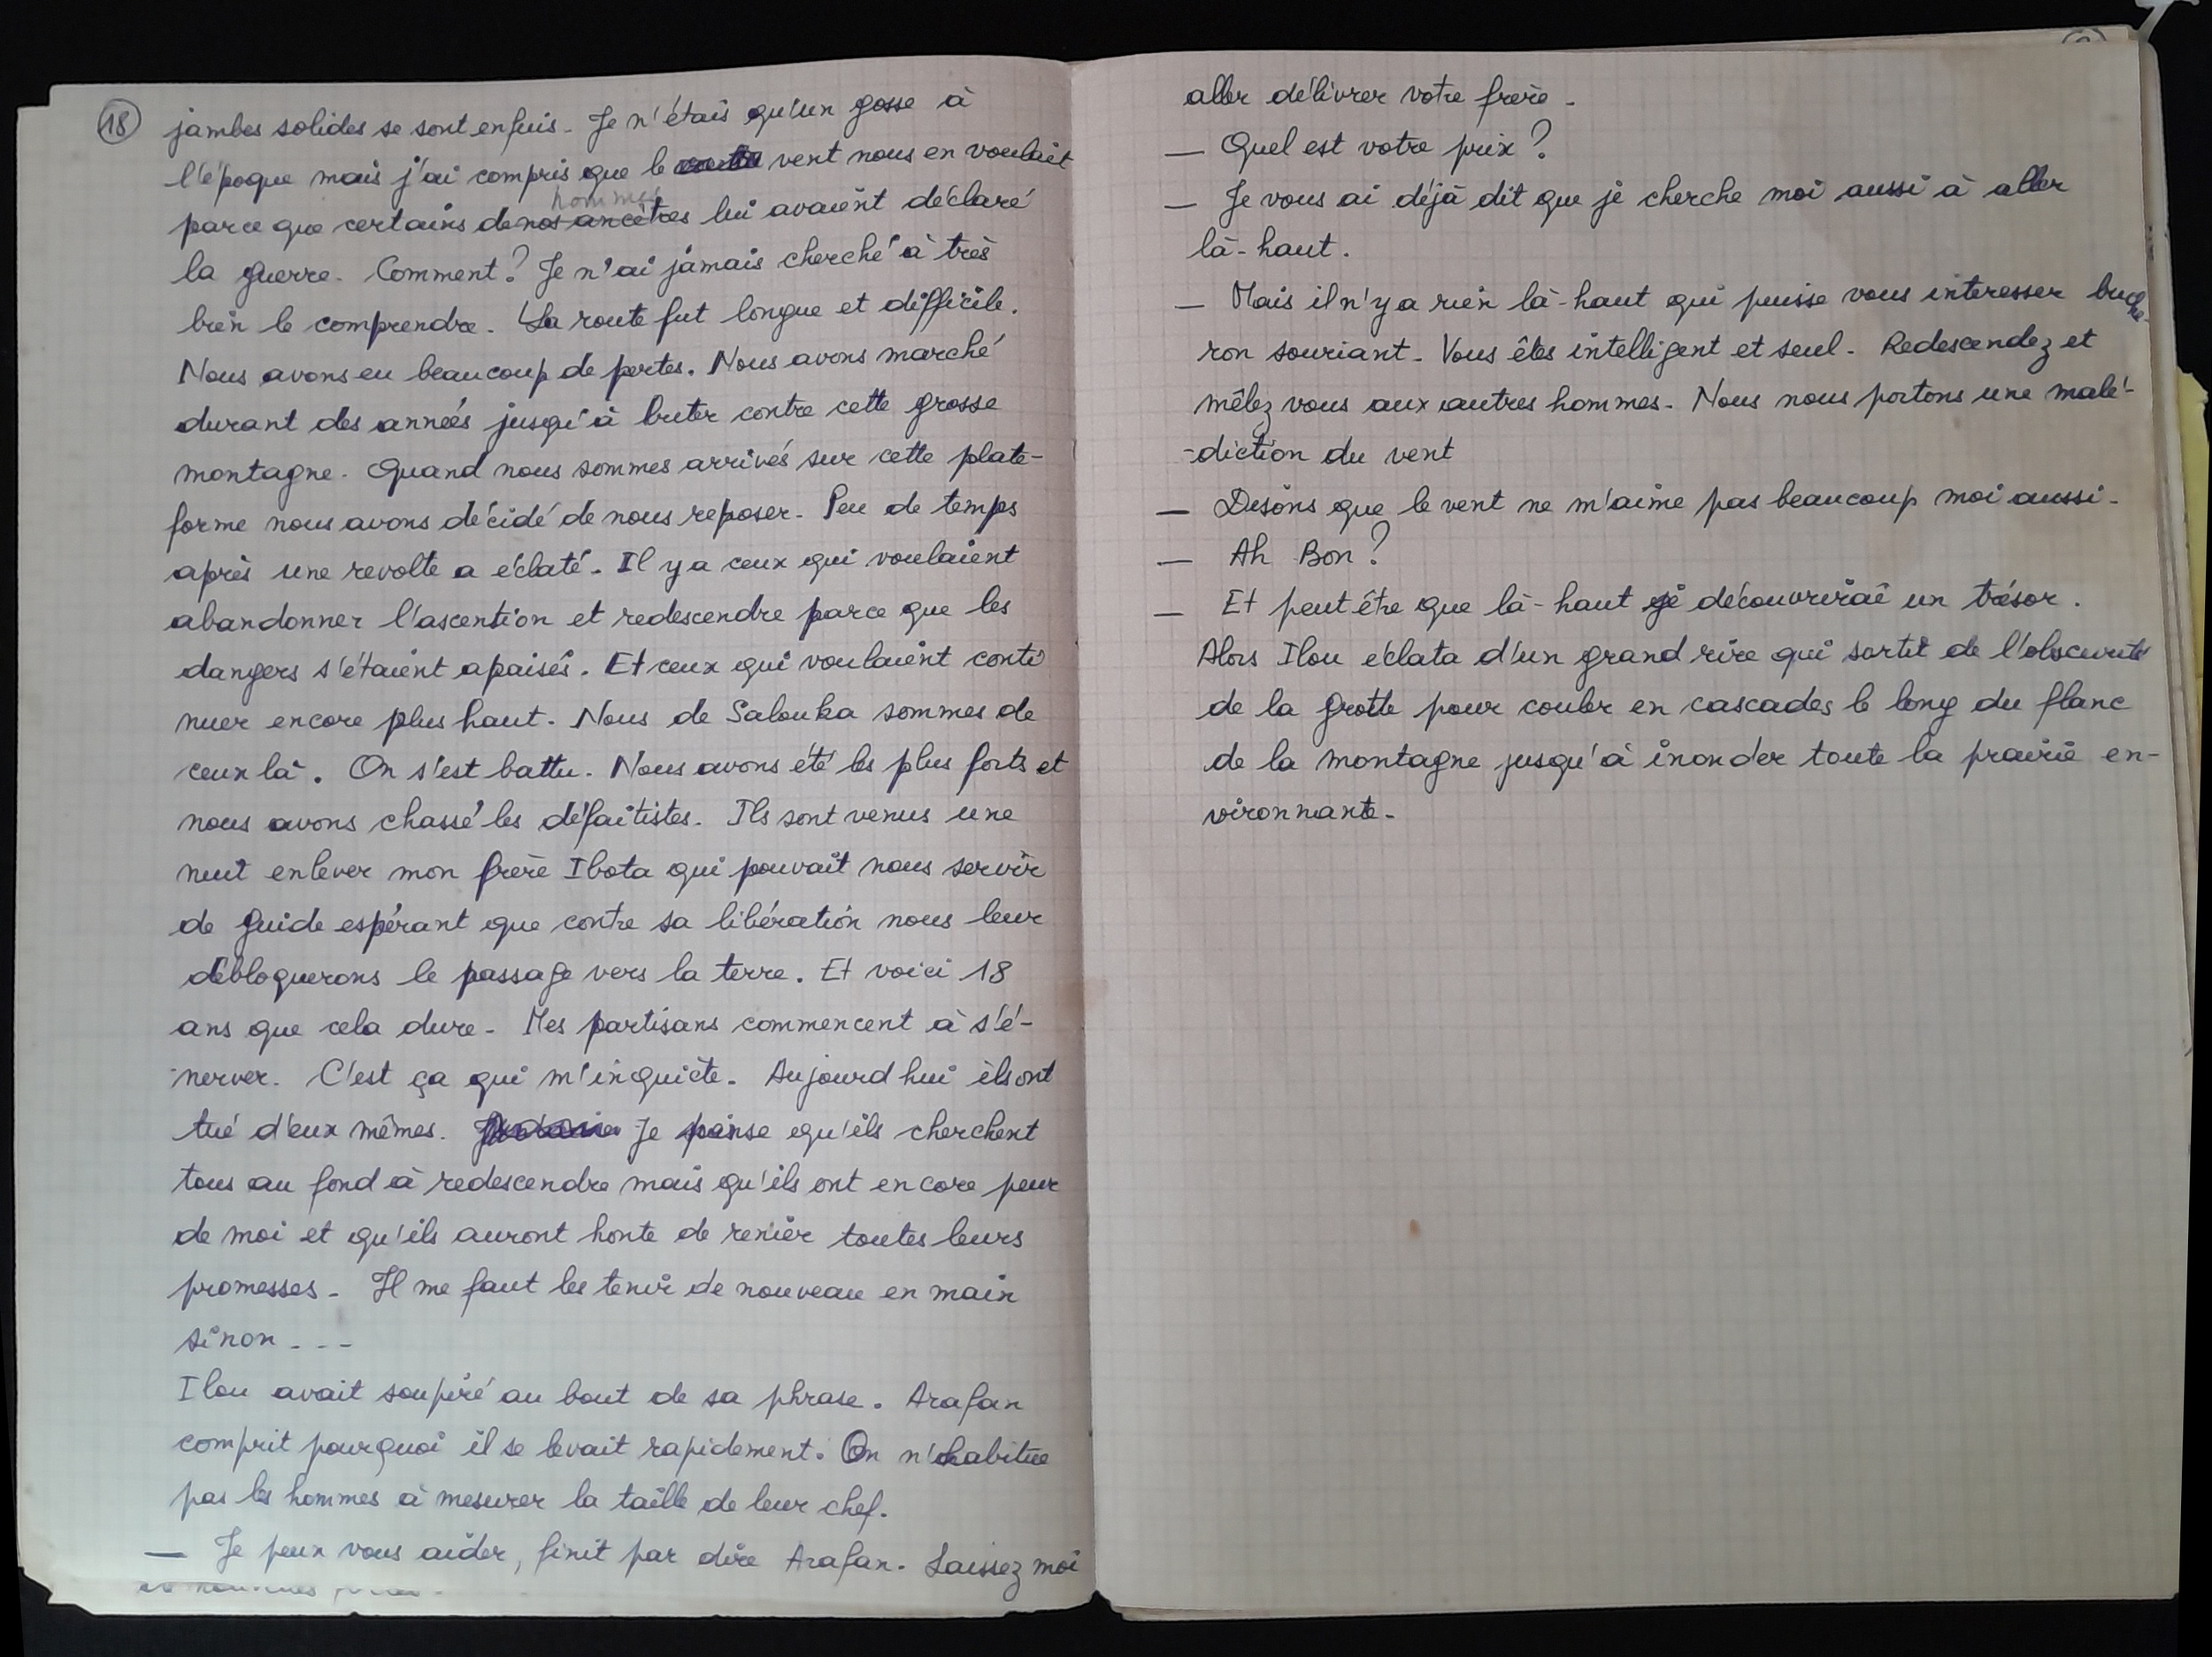 18
jambes solides se sont enfuis. Je n'étais qu'un gosse à
l'époque mais j'ai compris que le vent nous en voulait
hommes
parce que certains de nos ancêtres lui avaient déclaré
la guerre. Comment? Je n'ai jamais cherché à très
bien le comprendre. La route fut longue et difficile.
Nous avons eu beaucoup de pertes. Nous avons marché
durant des années jusqu'à buter contre cette grosse
montagne. Quand nous sommes arrivés sur cette plate-
forme nous avons décidé de nous reposer. Peu de temps
après une revolte a éclaté. Il y a ceux qui voulaient
abandonner l'ascention et redescendre parce que les
dangers s'étaient apaisés. Et ceux qui voulaient conti
nuer encore plus haut. Nous de Salouka sommes de
ceux là. On s'est battu. Nous avons été les plus forts et
nous avons chassé les défaitistes. Ils sont venus une
nuit enlever mon frère Ibota qui pouvait nous servir
de guide espérant que contre sa libération nous leur
débloquerons le passage vers la terre. Et voici 18
ans que cela dure. Mes partisans commencent à s'é-
-nerver. C'est ça qui m'inquiète. Aujourd hui ils ont
tué d'eux mêmes. Je pense qu'ils cherchent
tous au fond à redescendre mais qu'ils ont encore peur
de moi et qu'ils auront honte de renier toutes leurs
promesses. Il me faut les tenir de nouveau en main
sinon ...
Ilou avait soupiré au bout de sa phrase. Arafan
comprit pourquoi il se levait rapidement. On n'habitue
pas les hommes à mesurer la taille de leur chef.
— Je peux vous aider, finit par dire Arafan. Laissez moi
aller délivrer votre frère.
— Quel est votre prix?
— Je vous ai déjà dit que je cherche moi aussi à aller
là-haut.
— Mais il n'y a rien là-haut qui puisse vous interesser buche-
ron souriant. Vous êtes intelligent et seul. Redescendez et
mêlez vous aux autres hommes. Nous nous portons une malé-
-diction du vent
— Disons que le vent ne m'aime pas beaucoup moi aussi.
— Ah Bon?
— Et peut être que là-haut je découvrirai un trésor.
Alors Ilou éclata d'un grand rire qui sortit de l'obscurité
de la grotte pour couler en cascades le long du flanc
de la montagne jusqu'à inonder toute la prairie en-
vironnante.